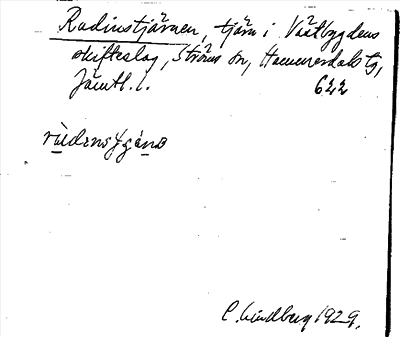 Radinstjärnen, tjärn i Västbygdens
skifteslag, Ströms sn, Hammerdals tg,
Jämtl. l. 622
C. Lindberg 1929.